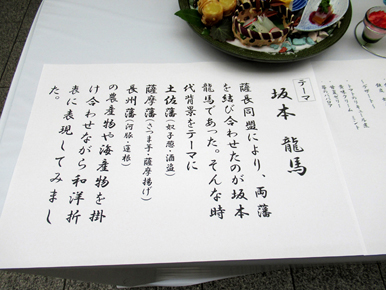 テーマ
坂本 龍馬
薩長同盟により、両藩
を結び合わせたのが坂本
龍馬であった。そんな時
代背景をテーマに
土佐藩(奴子鰹・酒盗)
薩摩藩(さつま芋・薩摩揚げ)
長州藩(河豚・蓮根)
の農産物や海産物を掛
け合わせながら和洋折
衷に表現してみまし
た。